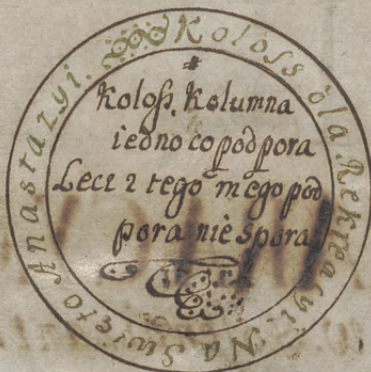 Koloss dla Rekreacyi. Na Swięto Anastazyi.
*
Koloss, Kolumna
iedno co podpora
Lecz z tego mego pod
pora nie spora